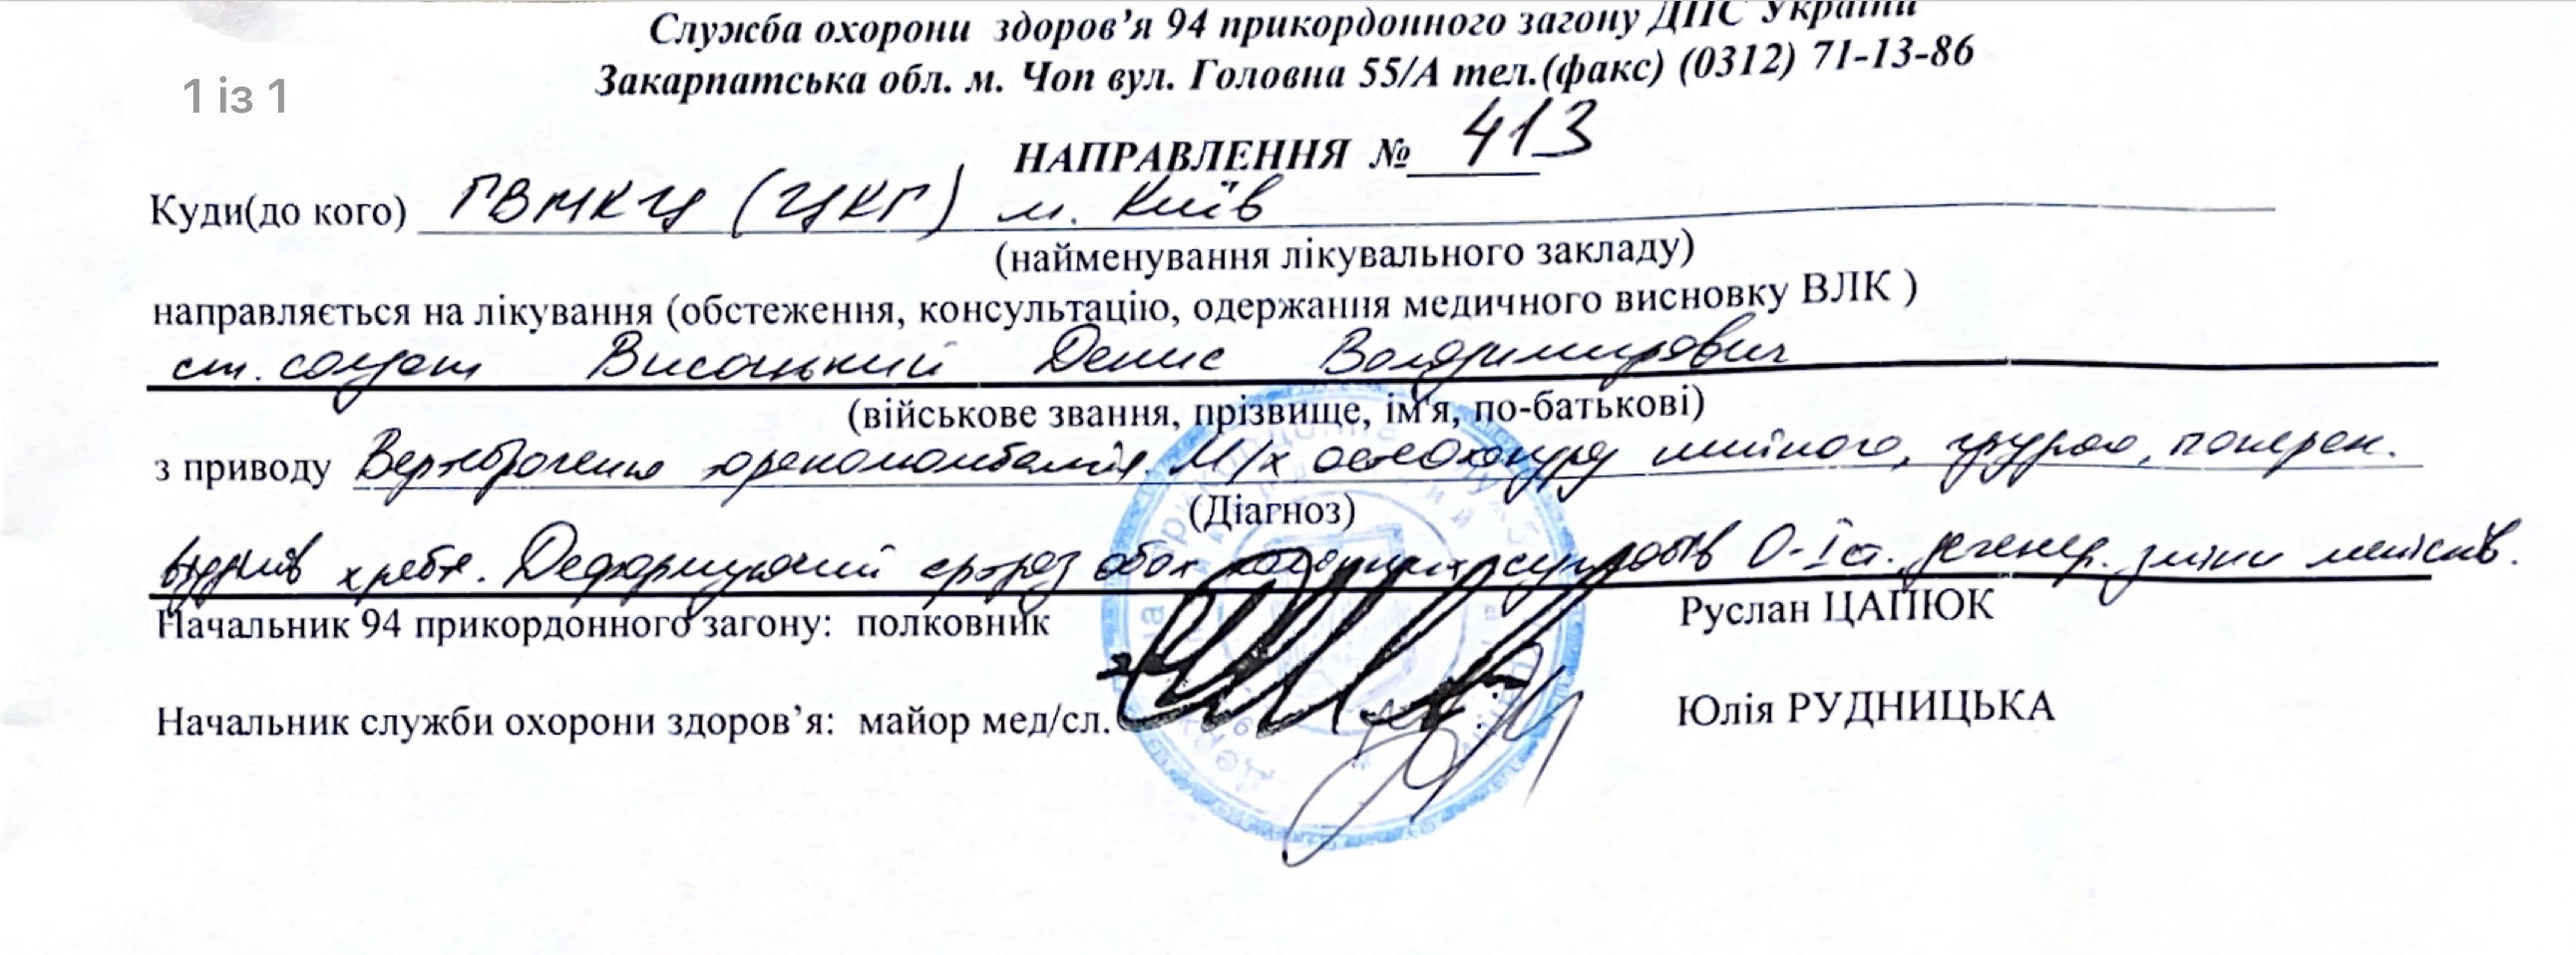 Служба охорони здоров’я 94 прикордонного загону ДПС України
Закарпатська обл. м. Чоп вул. Головна 55/А тел.(факс) (0312) 71-13-86
1 із 1
НАПРАВЛЕННЯ № 413
Куди(до кого) ГВМКЦ (ЦКГ) м. Київ
(найменування лікувального закладу)
направляється на лікування (обстеження, консультацію, одержання медичного висновку ВЛК )
ст. солдат Висоцький Денис Володимирович
(військове звання, прізвище, ім'я, по-батькові)
з приводу Вертеброгенна М/х остеохондроз шийного, грудного, попереk.
(Діагноз)
відділів хребта. Деформуючий артроз обох колінних суглобів 0-І ст. дегенер. зміни менісків.
Начальник 94 прикордонного загону: полковник Руслан ЦАПЮК
Начальник служби охорони здоров’я: майор мед/сл. Юлія РУДНИЦЬКА